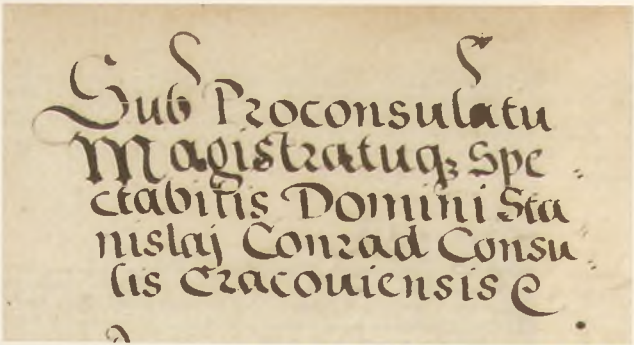 Sub Proconsulatu
Magistratuq; Spe
ctabilis Domini Sta
nislaj Conrad Consu
lis Cracouiensis